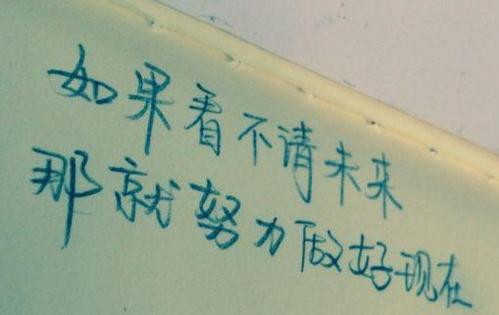 如果看不请未来
那就努力做好现在